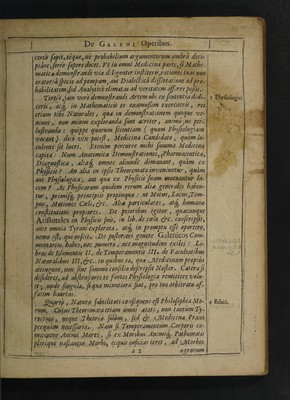 De GALENI Operibus.
cerit sapit, téque, nè probabilium argumentorum umbrâ deci-
piâre, seriò sapere docet. Vt in omni Medicina parte, si Mathe-
matica demonstrandi via diligenter institeris, rationes tuas non
oratoriâ specie ad pompam, aut Dialecticâ dissertatione ad pro-
babilitatem, sed Analyticè elimatas ad veritatem afferre possis.
Tertiò, jam verò demonstrandi Artem ubi ex sententia didi-
ceris, atq́; in Mathematicis te quamussim exercueris, res
etiam tibi Naturales, qua in demonstrationem quoque ve-
niunt, non minus explorandà sunt acriter, animo ne per-
lustranda: quippe quarum scientiam (quam Physiologiam
vocant) dici vix potest, Medicina Candidato, quàm lu-
culentè sit lucri. Etenim percurre mihi summa Medicina
capita: Num Anatomica Demonstrationes, Pharmaceutica,
Diagnostica, aliáq́; omnes aliundè demanant, quàm ex
Physicis? An alia in ipsis Theoremata inveniuntur, quàm
aut Physiologica, aut qua ex Physicis suam mutuantur lu-
cem? At Physicarum quidem rerum alia generales haben-
tur, primisq́; principiis propinqua: ut Motus, Locus, Tem-
pus, Mutationes, Cœli, &c. Alia particulares, atq́; humana
constitutioni propiores. De prioribus igitur, quacunque
Aristoteles in Physicis suis, in lib. de cœlo &c. conscripsit,
ante omnia Tyroni explorata, atq́; in promptu esse oportere,
nemo est, qui nesciat. De posteriori genere Galenicos Com-
mentarios habes, nec numero, nec magnitudine exiles: Li-
bros de Elementis II. de Temperamentis III. de Facultatibus
Naturalibus III. &c. in quibus ea, qua Medicinam propius
attingunt, non sine summo consilio descripsit Noster. Catera si
desideres, ad abstrusiores te fontes Physiologia remittere volu-
it; unde singula, si qua minutiora sint, pro tuo arbitratu af-
fatim haurias.
Quartò, Natura subtilitati consequens est Philosophia Mo-
rum, Cujus Theoremata etiam omni atati, non tantùm Ty-
rocinio, neque Theoria solùm, sed & Medicina Praxi
perquàm necessaria. Nam si Temperamentum Corporis co-
mitantur Animi Mores, si ex Moribus Animiq́; Pathematis
plerique nascuntur Morbi, tequis inficias ierit, ad Morbos
a 2
agrorum
3 Physiologicus
4 Ethicis.